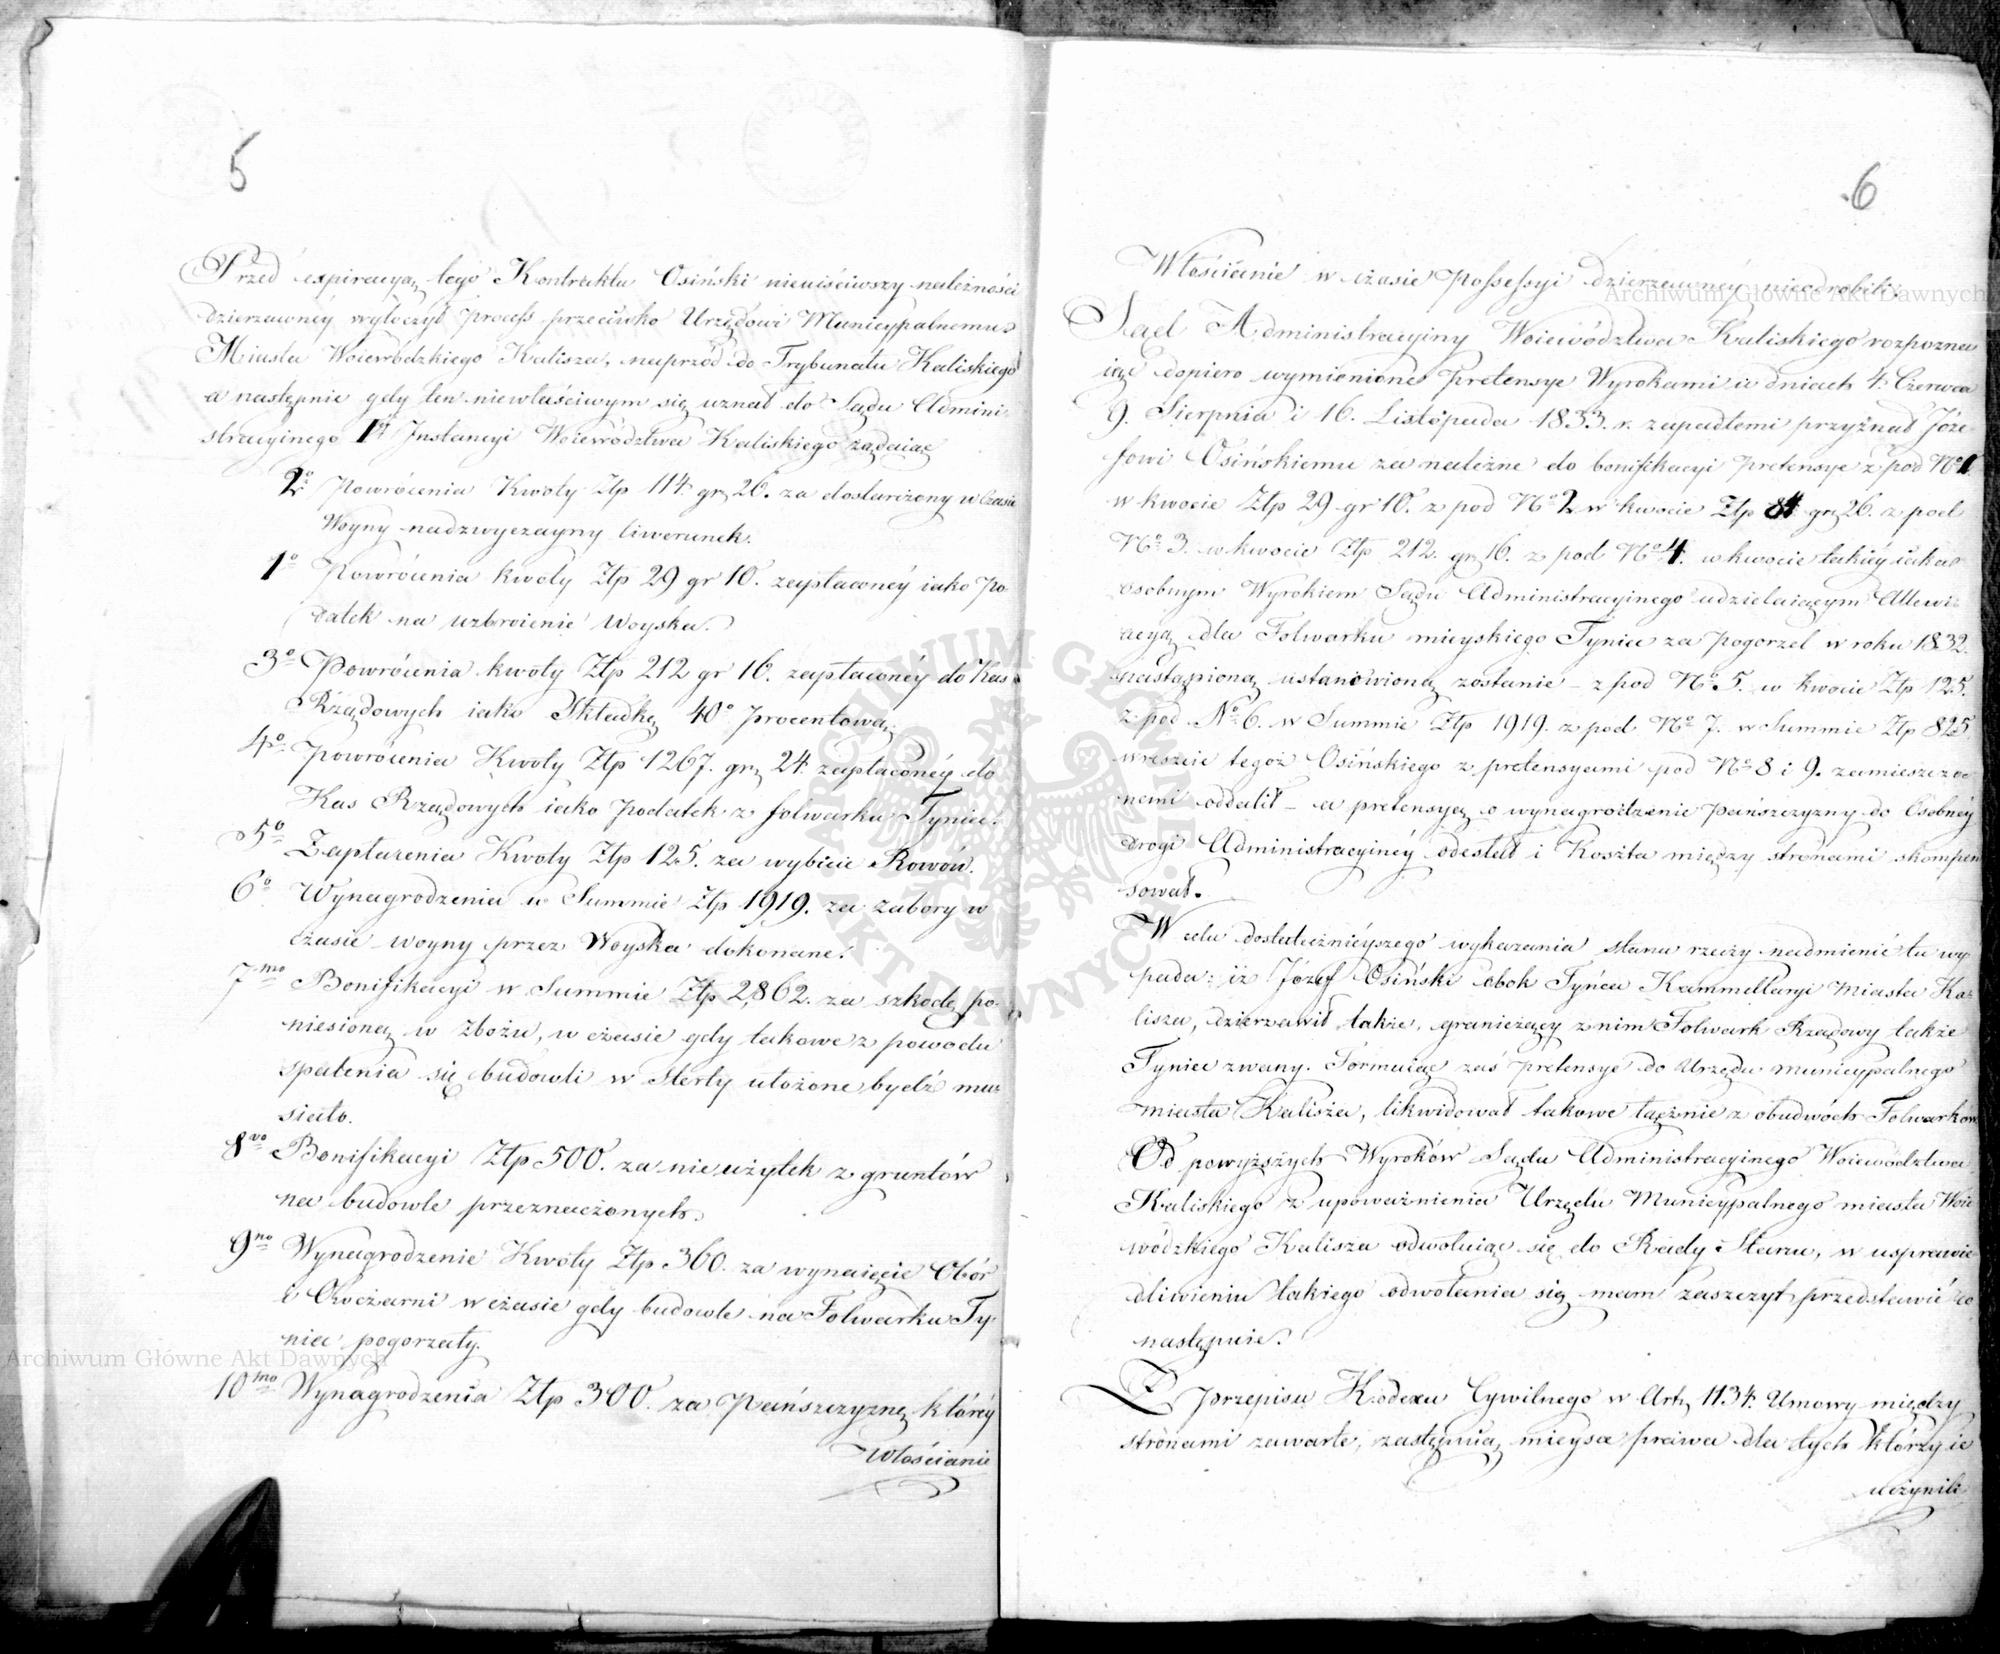 5
Przed expiracyą tego Kontraktu Osiński nieuiściwszy należności
dzierzawnéy wytoczył Process przeciwko Urzędowi Municypalnemu
Miasta Woiewodzkiego Kalisza, naprzód do Trybunału Kaliskiego
a następnie gdy ten niewłaściwym się uznał do Sądu Admini-
stracyinego 1éy Instancyi Woiewództwa Kaliskiego żądaiąc
2o Powrócenia Kwoty Złp 114 gr 26. za dostarczony w Czasie
Woyny nadzwyczayny liwerunek.
1o Powrócenia kwoty Złp 29 gr 10. zapłaconéy iako Po-
datek na uzbroienie Woyska.
3o Powrócenia kwoty Złp 212 gr 16. zapłaconéy do Kas
Rządowych iako Składkę 40o procentową.
4o Powrócenia Kwoty Złp 1267. gr 24. zapłaconéy do
Kas Rządowych iako podatek z folwarku Tyniec.
5o Zapłacenia Kwoty Złp 125. za wybicie Rowów.
6o Wynagrodzenia w Summie Złp 1919. za zabory w
czasie woyny przez Woyska dokonane.
7mo Bonifikacyi w Summie Złp 2,862. za szkodę po-
niesioną w zbożu, w czasie gdy takowe z powodu
spalenia się budowli w sterty ułożone bydź mu-
siało.
8vo Bonifikacyi Złp 500. za nie użytek z gruntów
na budowle przeznaczonych.
9no Wynagrodzenie Kwoty Złp 360. za wynaięcie Obór
i Owczarni w czasie gdy budowle na Folwarku Ty-
niec pogorzały.
10mo Wynagrodzenia Złp 300. za Pańszczyznę któréy
Włościanie
6
Włościanie w czasie Possessyi dzierzawnéy nieodrobili.
Sąd Administracyiny Woiewództwa Kaliskiego rozpozna
iąc dopiero wymienione Pretensye Wyrokami w dniach 4. Czerwca
9. Sierpnia i 16. Listopada 1833. r. zapadłemi przyznał Józe-
fowi Osińskiemu za należne do bonifikacyi pretensye z pod No 1
w kwocie Złp 29 gr 10. z pod No 2 w kwocie Złp 84 gr 26. z pod
No 3. w kwocie Złp 212. gr 16. z pod No 4. w kwocie takiéy iaka
osobnym Wyrokiem Sądu Administracyinego udzielaiącym Allewi-
acyą dla Folwarku mieyskiego Tyniec za pogorzel w roku 1832.
nastąpioną ustanowioną zostanie – z pod No 5. w kwocie Złp 125.
z pod No 6. w Summie Złp 1919. z pod No 7. w Summie Złp 825
wreszcie tegoż Osińskiego z pretensyami pod No 8 i 9. zamieszczo-
nemi oddalił – a pretensyą o wynagrodzenie Pańszczyzny do Osobnéy
drogi Administracyinéy odesłał i Koszta między stronami skompen-
sował.
W celu dostatecznieyszego wykazania stanu rzeczy nadmienić tu wy-
pada: iż Józef Osiński obok Tyńca Kammellaryi Miasta Ka-
lisza, dzierzawił także, graniczący z nim Folwark Rządowy także
Tyniec zwany. Formuiąc zaś pretensye do Urzędu municypalnego
miasta Kalisza, likwidował takowe łącznie z obudwóch Folwarków.
Od powyższych Wyroków Sądu Administracyinego Woiewództwa
Kaliskiego z upoważnienia Urzędu Municypalnego miasta Woie-
wódzkiego Kalisza odwołuiąc się do Rady Stanu, w usprawie-
dliwieniu takiego odwołania się mam zaszczyt przedstawić co
następuie.
Z przepisu Kodexu Cywilnego w Art. 1134. Umowy między
stronami zawarte, zastępuią mieysce prawa dla tych którzy ie
uczynili
Archiwum Główne Akt Dawnych
Archiwum Główne Akt Dawnych
ARCHIWUM GŁÓWNE AKT DAWNYCH